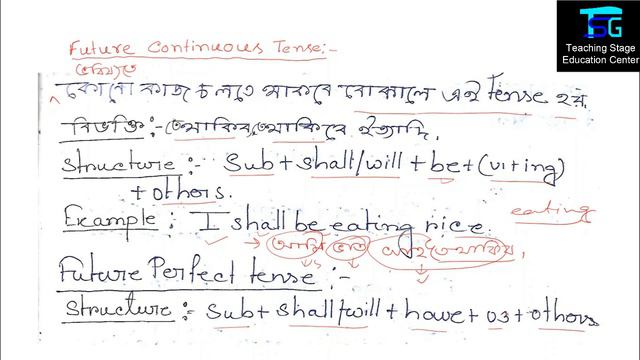 TSG
Teaching Stage
Education Center
Future Continuous Tense:-
ভবিষ্যতে
কোনো কাজ চলতে থাকবে বোঝালে এই tense হয়
বিভক্তি :- তেথাকিব, তেথাকিবে ইত্যাদি,
Structure :- Sub + shall/will + be + (v1+ing)
+ others.
Example : I shall be eating rice. eating
→ আমি ভাত
Future Perfect tense :-
Structure :- Sub + shall/will + have + v3 + others